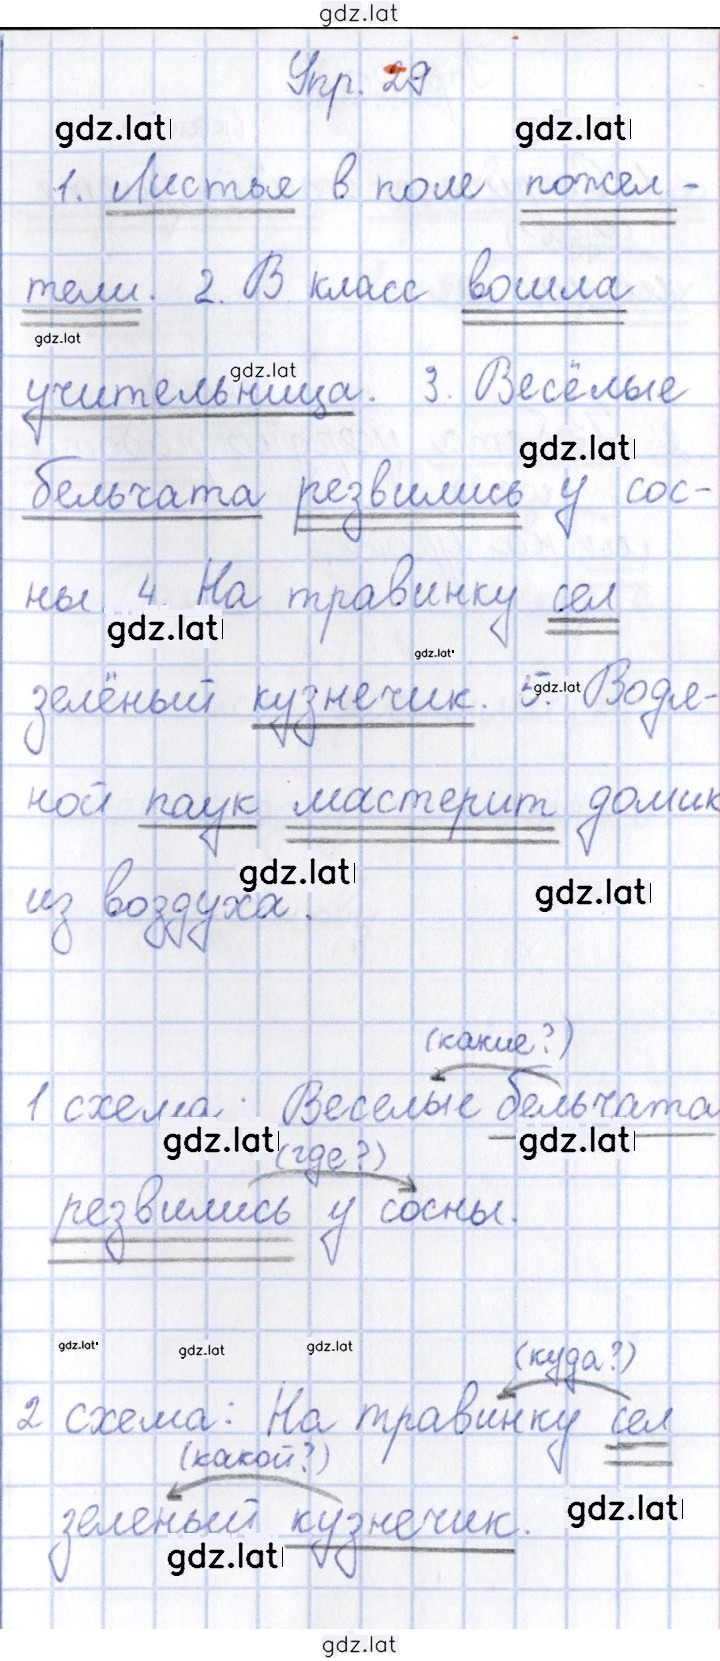 gdz.lat
Упр. 29
gdz.lat gdz.lat
1. Листья в поле пожел-
тели. 2. В класс вошла
gdz.lat
gdz.lat
учительница. 3. Весёлые
gdz.lat
бельчата резвились у сос-
ны 4. На травинку сел
gdz.lat
gdz.lat
зелёный кузнечик. 5. Водя-
gdz.lat
ной паук мастерит домик
gdz.lat gdz.lat
из воздуха.
(какие?)
1 схема: Веселые бельчата
gdz.lat gdz.lat
(где?)
резвились у сосны.
gdz.lat gdz.lat gdz.lat
(куда?)
2 схема: На травинку сел
(какой?)
зеленый кузнечик.
gdz.lat
gdz.lat
gdz.lat